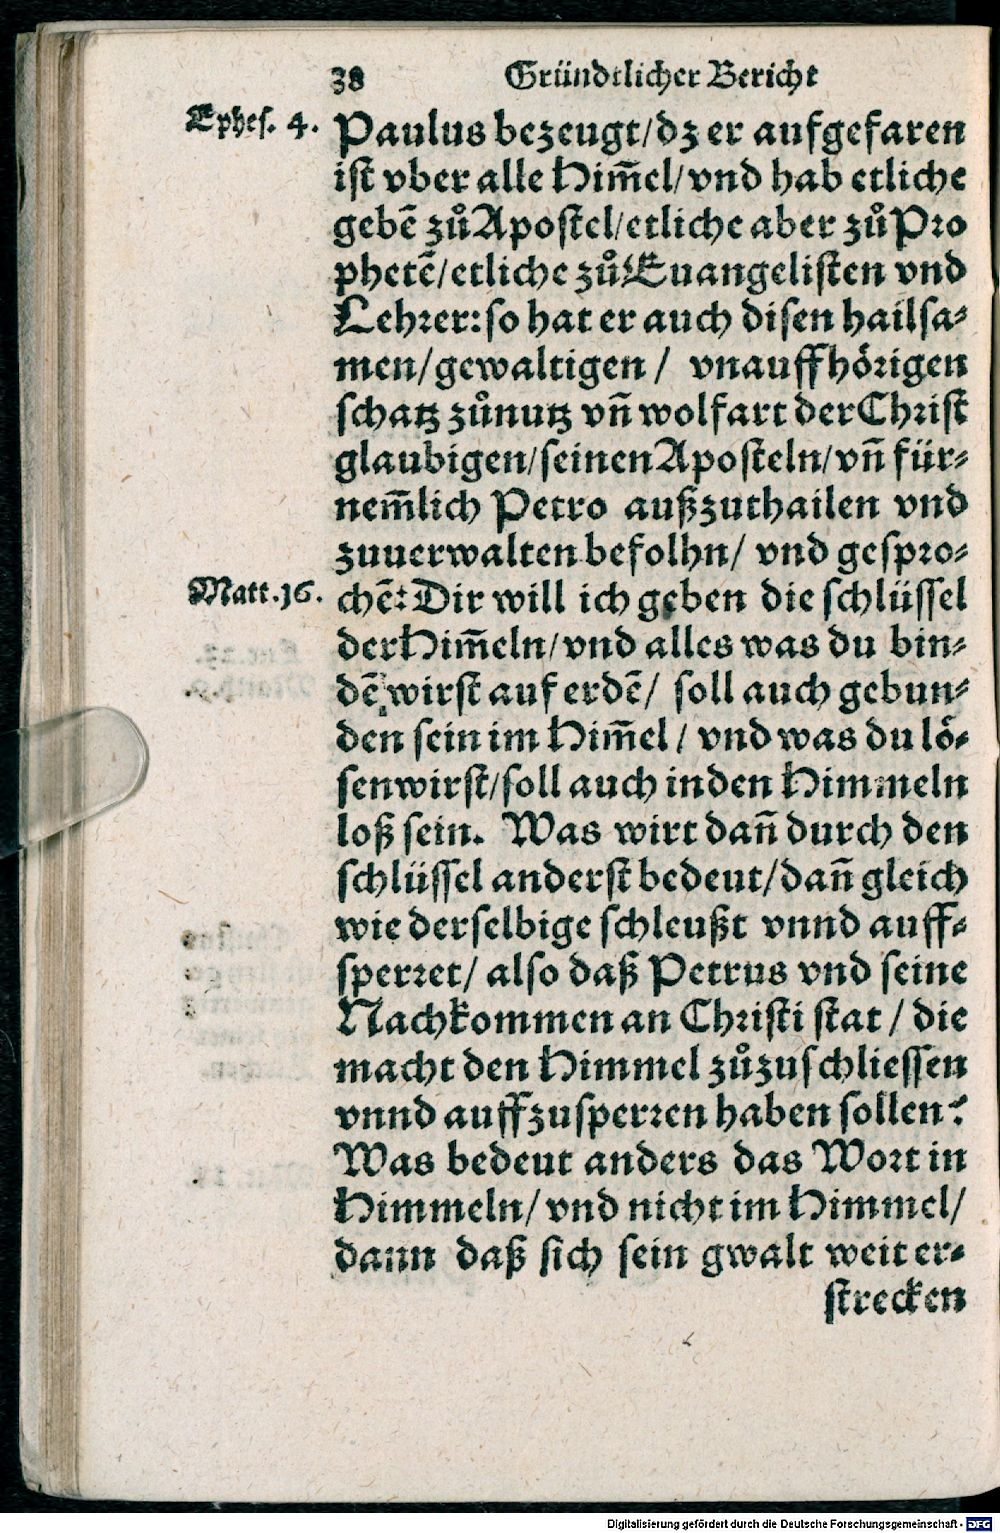 38 Gründtlicher Bericht
Ephes. 4. Paulus bezeugt/dz er aufgefaren
ist vber alle Him̃el/vnd hab etliche
gebẽ zůApostel/etliche aber zůPro
phetẽ/etliche zůEuangelisten vnd
Lehrer: so hat er auch disen hailsa-
men/gewaltigen / vnauffhörigen
schatz zůnutz vñ wolfart der Christ
glaubigen/seinen Aposteln/vñ für-
nem̃lich Petro außzuthailen vnd
zuuerwalten befolhn/ vnd gespro-
Matt.16. chẽ: Dir will ich geben die schlüssel
der Him̃eln/vnd alles was du bin-
dẽ wirst auf erdẽ/ soll auch gebun-
den sein im Him̃el / vnd was du lö-
sen wirst/soll auch in den Himmeln
loß sein. Was wirt dañ durch den
schlüssel anderst bedeut/dañ gleich
wie derselbige schleußt vnnd auff-
sperret/ also daß Petrus vnd seine
Nachkommen an Christi stat / die
macht den Himmel zůzuschliessen
vnnd auffzusperren haben sollen?
Was bedeut anders das Wort in
Himmeln/ vnd nicht im Himmel/
dann daß sich sein gwalt weit er-
strecken
Digitalisierung gefördert durch die Deutsche Forschungsgemeinschaft - DFG